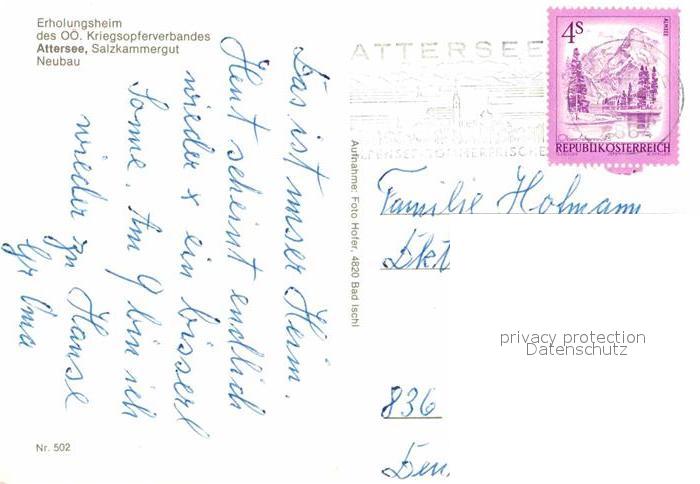 Erholungsheim
des OÖ. Kriegsopferverbandes
Attersee, Salzkammergut
Neubau
Das ist unser Heim.
Heut scheint endlich
wieder x ein bisserl
Sonne. Am 9 bin ich
wieder zu Hause
Gr Oma
Nr. 502
Aufnahme: Foto Hofer, 4820 Bad Ischl
ATTERSEE
SOMMERFRISCHE
4S
ALMSEE
REPUBLIK ÖSTERREICH
Familie Hofmann
privacy protection
Datenschutz
836